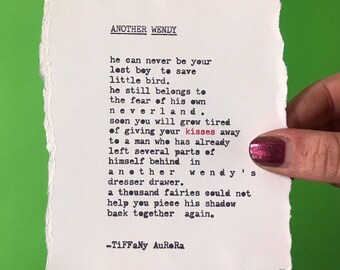 ANOTHER WENDY
he can never be your
lost boy to save
little bird.
he still belongs to
the fear of his own
n e v e r l a n d .
soon you will grow tired
of giving your kisses away
to a man who has already
left several parts of
himself behind in
a n o t h e r w e n d y ' s
dresser drawer.
a thousand fairies could not
help you piece his shadow
back together again.
–TiFFaNy AuRoRa